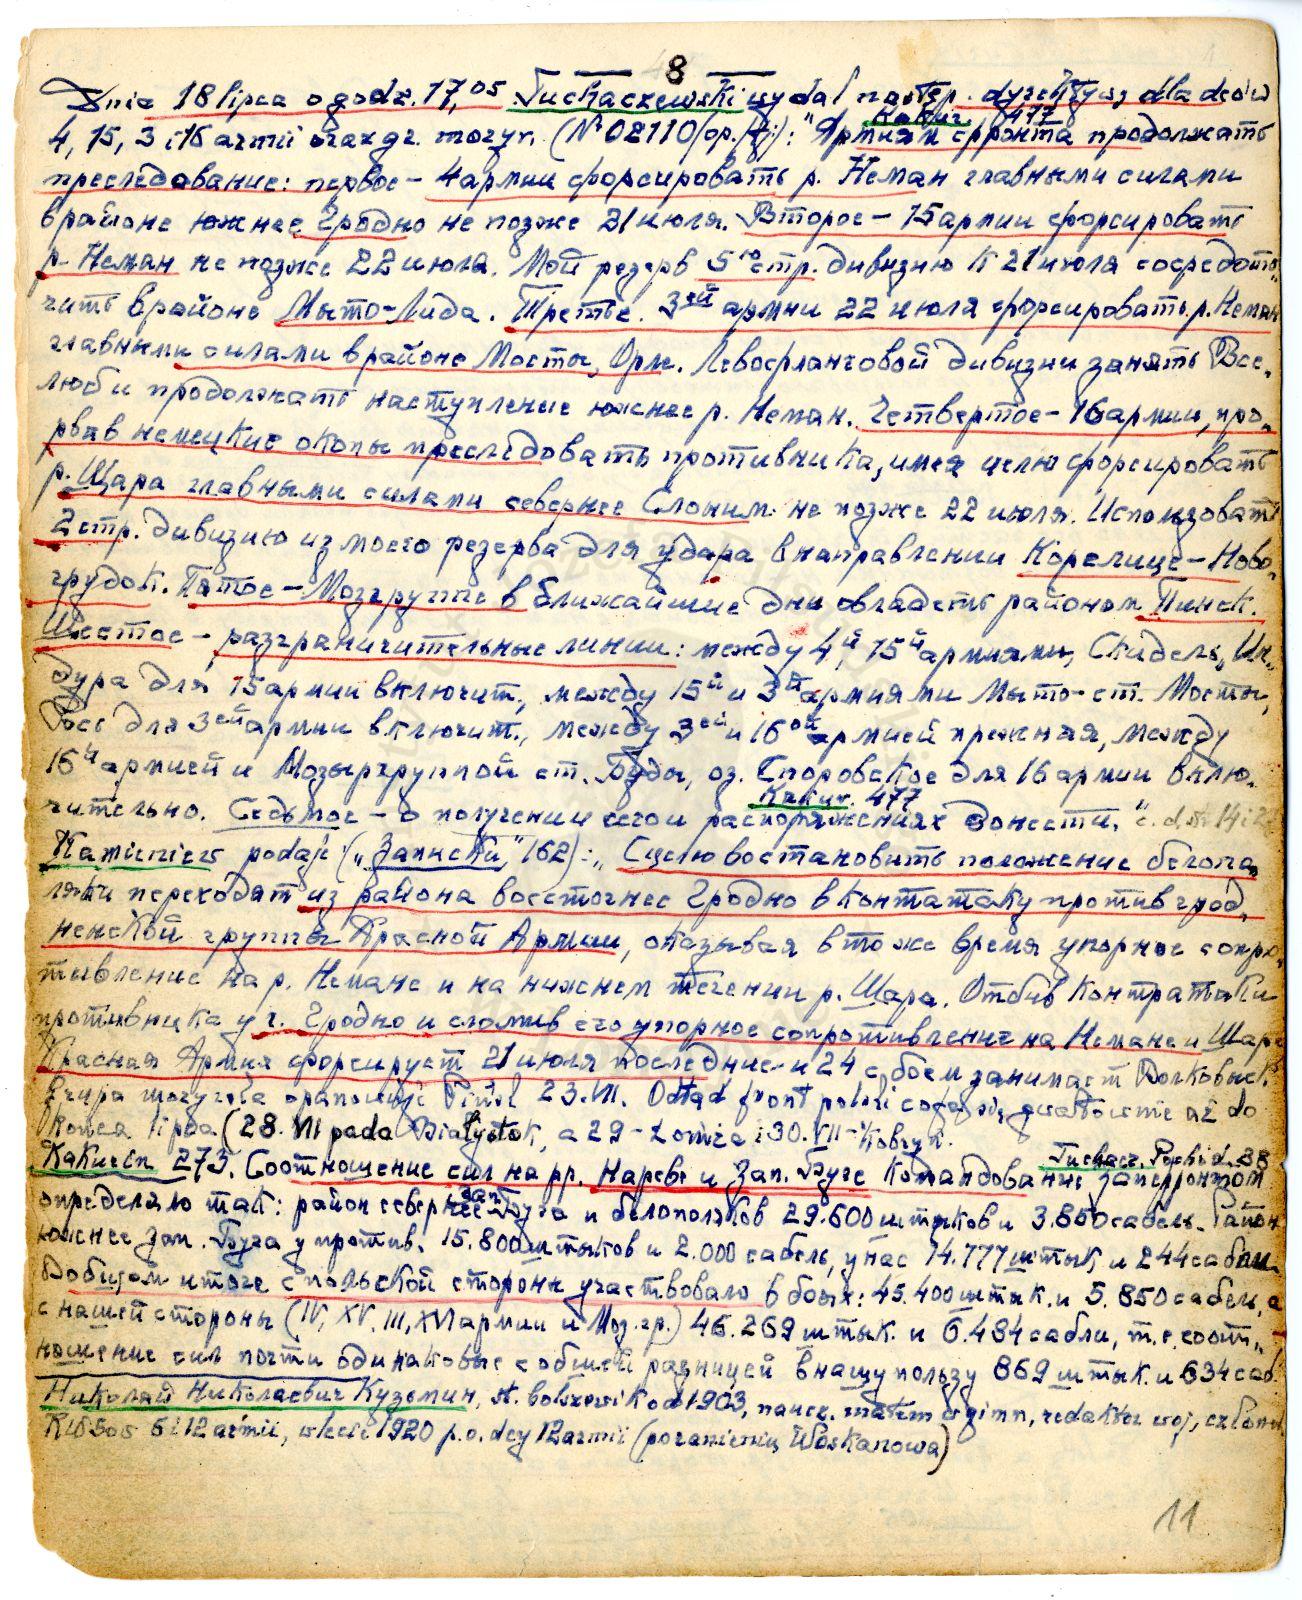 — 8 —
Dnia 18 lipca o godz. 17,05 Tuchaczewski wydał następ. dyrektywę dla dców
Kakur. 477
4, 15, 3 i 16 armii oraz gr. mozyr. (№ 02110/op./ ): "Армиям фронта продолжать
преследование: первое – 4 армии форсировать р. Неман главными силами
в районе южнее Гродно не позже 21 июля. Второе – 15 армии форсировать
р. Неман не позже 22 июля. Мой резерв 5ю стр. дивизию к 21 июля сосредото-
чить в районе Мыто-Лида. Третье. 3ей армии 22 июля форсировать р. Неман
главными силами в районе Мосты, Орля. Левофланговой дивизии занять Все-
люб и продолжать наступление южнее р. Неман. Четвертое – 16 армии, про-
рвав немецкие окопы преследовать противника, имея целю форсировать
р. Щара главными силами севернее Слоним не позже 22 июля. Использовать
2 стр. дивизию из моего резерва для удара в направлении Корелице – Ново-
грудок. Пятое – Мозгруппе в ближайшие дни овладеть районом Пинск.
Шестое – разграничительные линии: между 4й, 15й армиями, Скидель, Ин-
дура для 15 армии включит., между 15й и 3й армиями Мыто – ст. Мосты,
Рось для 3ей армии включит., между 3ей и 16ой армией прежняя, между
16й армией и Мозыргруппой ст. Буды, оз. Споровское для 16 армии вклю-
чительно. Седьмое – о получении сего и распоряжениях донести." c.d. str 14 i 2
Kakur. 477
Kamieniew podaje („Записки" 162): „С целю востановить положение белопо-
ляки переходят из района восточнее Гродно в контатаку против грод-
ненской группы Красной Армии, оказывая в тоже время упорное сопро-
тивление на р. Немане и на нижнем течении р. Щара. Отбив контратаки
противника у г. Гродно и сломив его упорное сопротивление на Немане и Щаре
Красная Армия форсирует 21 июля последние и 24 с боем занимает Волковыск.
Grupa mozyrska opanowuje Pińsk 23.VII. Odtąd front polski cofa się gwałtownie aż do
końca lipca (28.VII pada Białystok, a 29 – Łomża i 30.VII – Kobryń.
Tuchacz. Pochód. 38
Kakurin 273. Соотношение сил на рр. Нареве и Зап. Буге командование запфронтом
определяло так: район севернее зап. Буга и белополяков 29.600 штыков и 3.850 сабель. Район
южнее зап. Буга у против. 15.800 штыков и 2.000 сабель, у нас 14.777 штык. и 244 сабли.
В общем итоге с польской стороны участвовало в боях: 45.400 штык. и 5.850 сабель, а
с нашей стороны (IV, XV, III, XVI армии и Моз. гр.) 46.269 штык. и 6.484 сабли, т.е. соот-
ношение сил почти одинаковые с общей разницей в нашу пользу 869 штык. и 634 саб.
Николай Николаевич Кузьмин, st. bolszewik od 1903, naucz. matem w gimn, redaktor woj., członek
RWSow 6 i 12 armii, w lecie 1920 p.o. dcy 12 armii (po ranieniu Woskanowa)
11